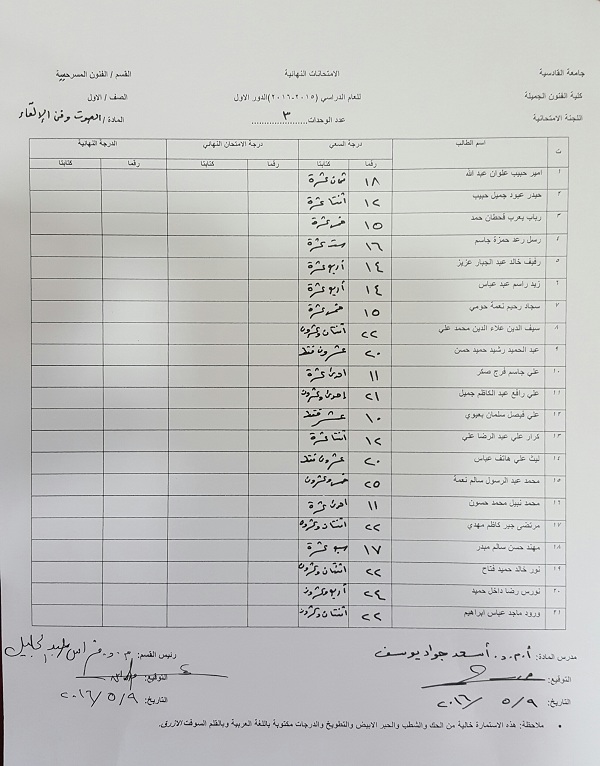 جامعة القادسية الامتحانات النهائية القسم / الفنون المسرحية
كلية الفنون الجميلة للعام الدراسي (٢٠١٥-٢٠١٦) الدور الاول الصف / الاول
اللجنة الامتحانية عدد الوحدات ٣ المادة / الصوت وفن الإلقاء
ت اسم الطالب درجة السعي درجة الامتحان النهائي الدرجة النهائية
رقما كتابتا رقما كتابتا رقما كتابتا
١ امير حبيب علوان عبد الله ١٨ ثمان عشرة
٢ حيدر عبود جميل حبيب ١٢ أثنتا عشرة
٣ رباب يعرب قحطان حمد ١٥ خمس عشرة
٤ رسل رعد حمزة جاسم ١٦ ست عشرة
٥ رفيف خالد عبد الجبار عزيز ١٤ أربع عشرة
٦ زيد راسم عبد عباس ١٤ أربع عشرة
٧ سجاد رحيم نعمة حومي ١٥ خمس عشرة
٨ سيف الدين علاء الدين محمد علي ٢٢ اثنتان وعشرون
٩ عبد الحميد رشيد حميد حسن ٢٠ عشرون فقط
١٠ علي جاسم فرج صكر ١١ احدى عشرة
١١ علي رافع عبد الكاظم جميل ٢١ احدى وعشرون
١٢ علي فيصل سلمان بعيوي ١٠ عشر فقط
١٣ كرار علي عبد الرضا علي ١٢ اثنتا عشرة
١٤ ليث علي هاتف عباس ٢٠ عشرون فقط
١٥ محمد عبد الرسول سالم نعمة ٢٥ خمس وعشرون
١٦ محمد نبيل محمد حسون ١١ احدى عشرة
١٧ مرتضى جبر كاظم مهدي ٢٢ اثنتان وعشرون
١٨ مهند حسن سالم ميدر ١٧ سبع عشرة
١٩ نور خالد حميد فتاح ٢٢ اثنتان وعشرون
٢٠ نورس رضا داخل حميد ٢٤ أربع وعشرون
٢١ ورود ماجد عباس ابراهيم ٢٢ اثنتان وعشرون
مدرس المادة: أ.م.د. أسعد جواد يوسف رئيس القسم: م.د. فراس
التوقيع: التوقيع:
التاريخ: ٩/ ٥/ ٢٠١٦ التاريخ: ٩/ ٥/ ٢٠١٦
• ملاحظة: هذه الاستمارة خالية من الحك والشطب والحبر الابيض والتطويخ والدرجات مكتوبة باللغة العربية وبالقلم السوفت الازرق.